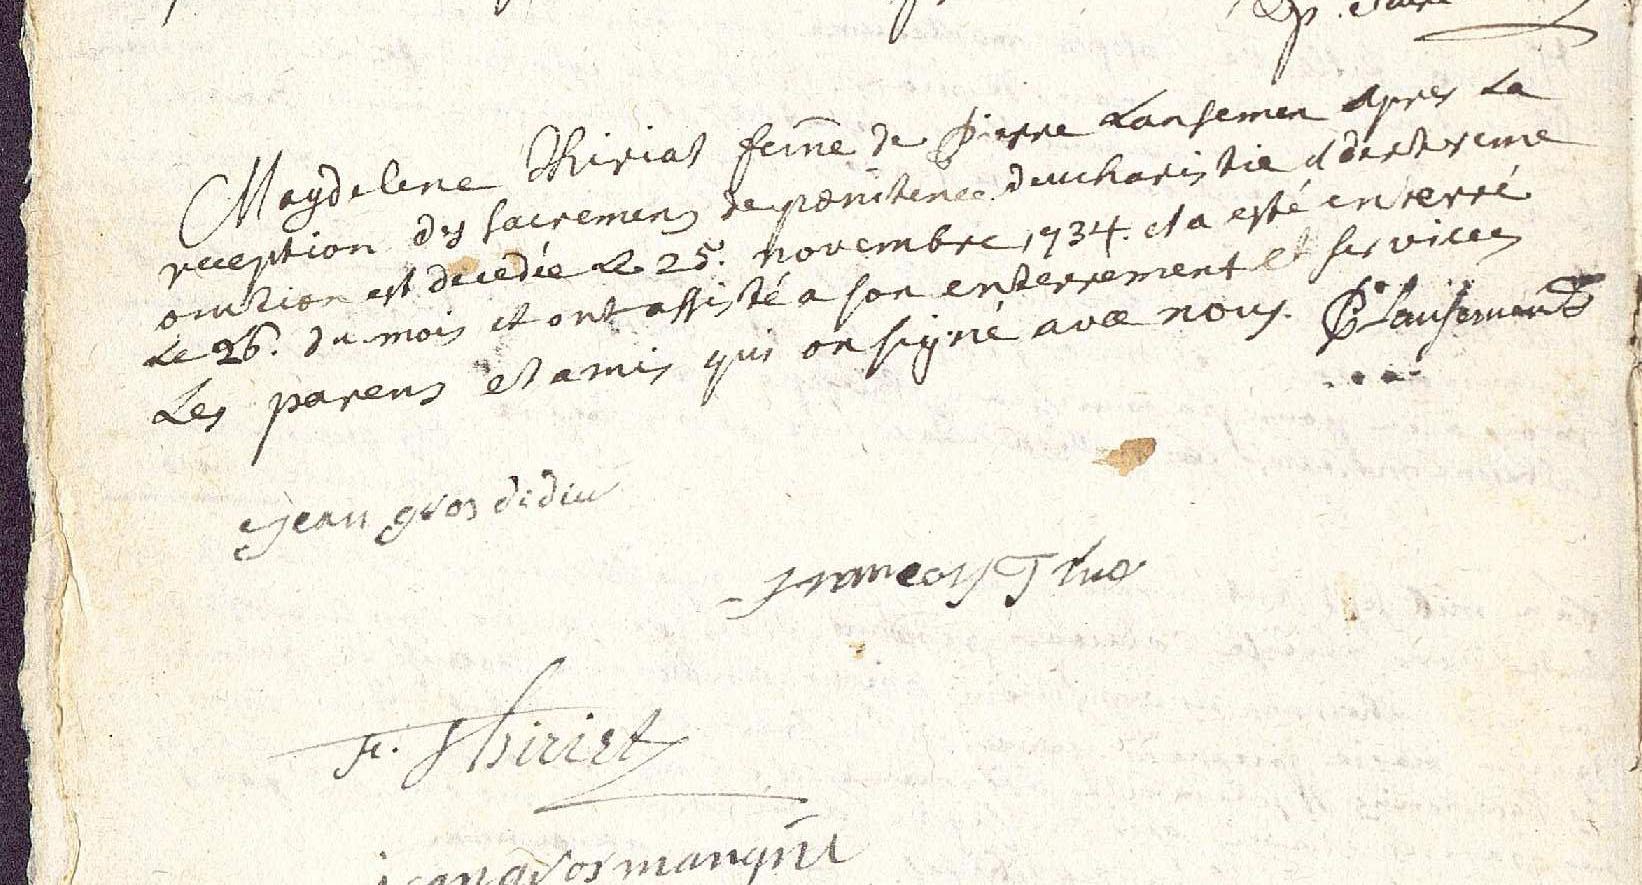 Magdelene Thiriat feme de Pierre Lansemen apres La
reception des sacremens de pœnitence deucharistie et dextreme
onction est decedée le 25. novembre 1734. et a esté enterré
Le 26. du mois et ont assisté a son enterrement et services
Les parens et amis qui on signé avec nous. P Lansemant
jean gros didiu
francois
F. thiriet
jean gros mangin